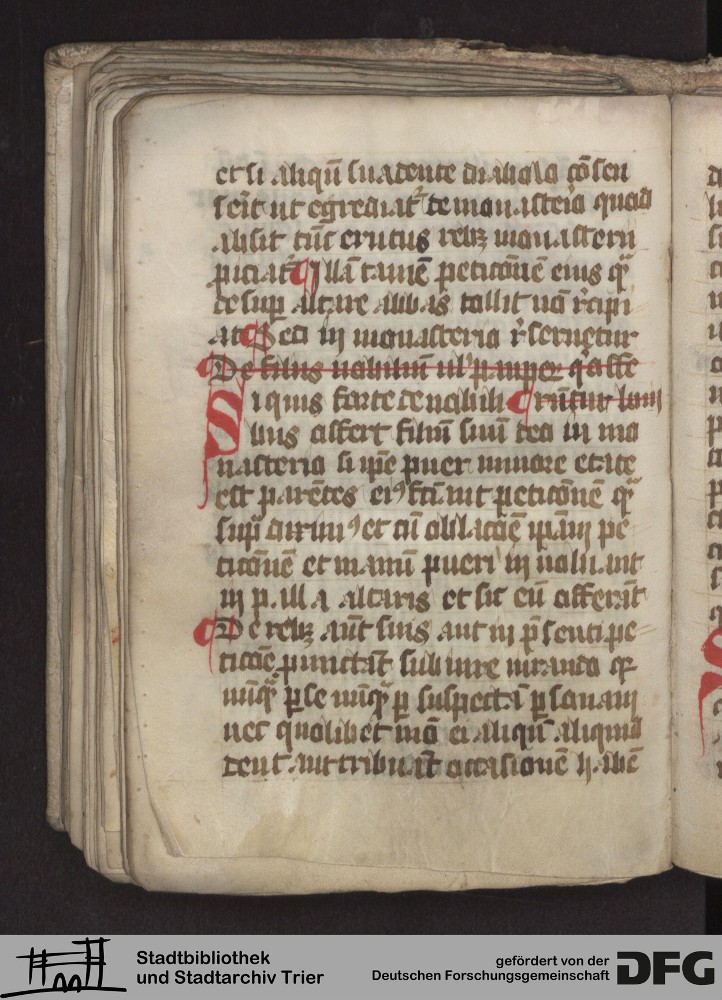 et si aliqñ suadente diabolo cõsen
serit ut egrediat᷑ de monasterio quod
absit tũc exutus rebꝫ monasterii
ꝓiciat᷑ Illã tamẽ peticõnẽ eius q̃
desup altare abbas tollit nõ r̃cipi
at Sed in monasterio r̃seruetur
De filiis nobiliũ ul' pauperꝝ q' offe
Si quis forte de nobili runtur
bus offert filiũ suũ deo in mo
nasterio si ip̃e puer minore etate
est parẽtes eiꝰ faciant peticõnẽ q̃
sup̃ diximꝰ et cũ oblacõe ip̃am pe
ticõnẽ et manũ pueri inuoluant
in palla altaris et sic eũ offerãt
De rebꝫ aũt suis aut in p̃senti pe
ticõe ꝓmittãt sub iureiurando qꝛ
nũq̃ ꝑ se nũq̃ ꝑ suspectã ꝑsonam
nec quolibet mõ ei aliqñ aliquid
dent aut tribuãt occasionẽ habẽ
Stadtbibliothek
und Stadtarchiv Trier
gefördert von der
Deutschen Forschungsgemeinschaft
DFG